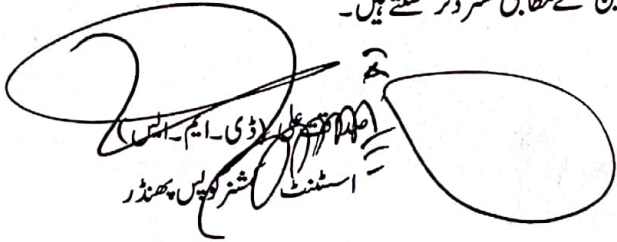 کے مطابق مسترد کر سکتے ہیں۔
علی (ڈی۔ایم۔ایس)
اسسٹنٹ کمشنر گوپس پھنڈر